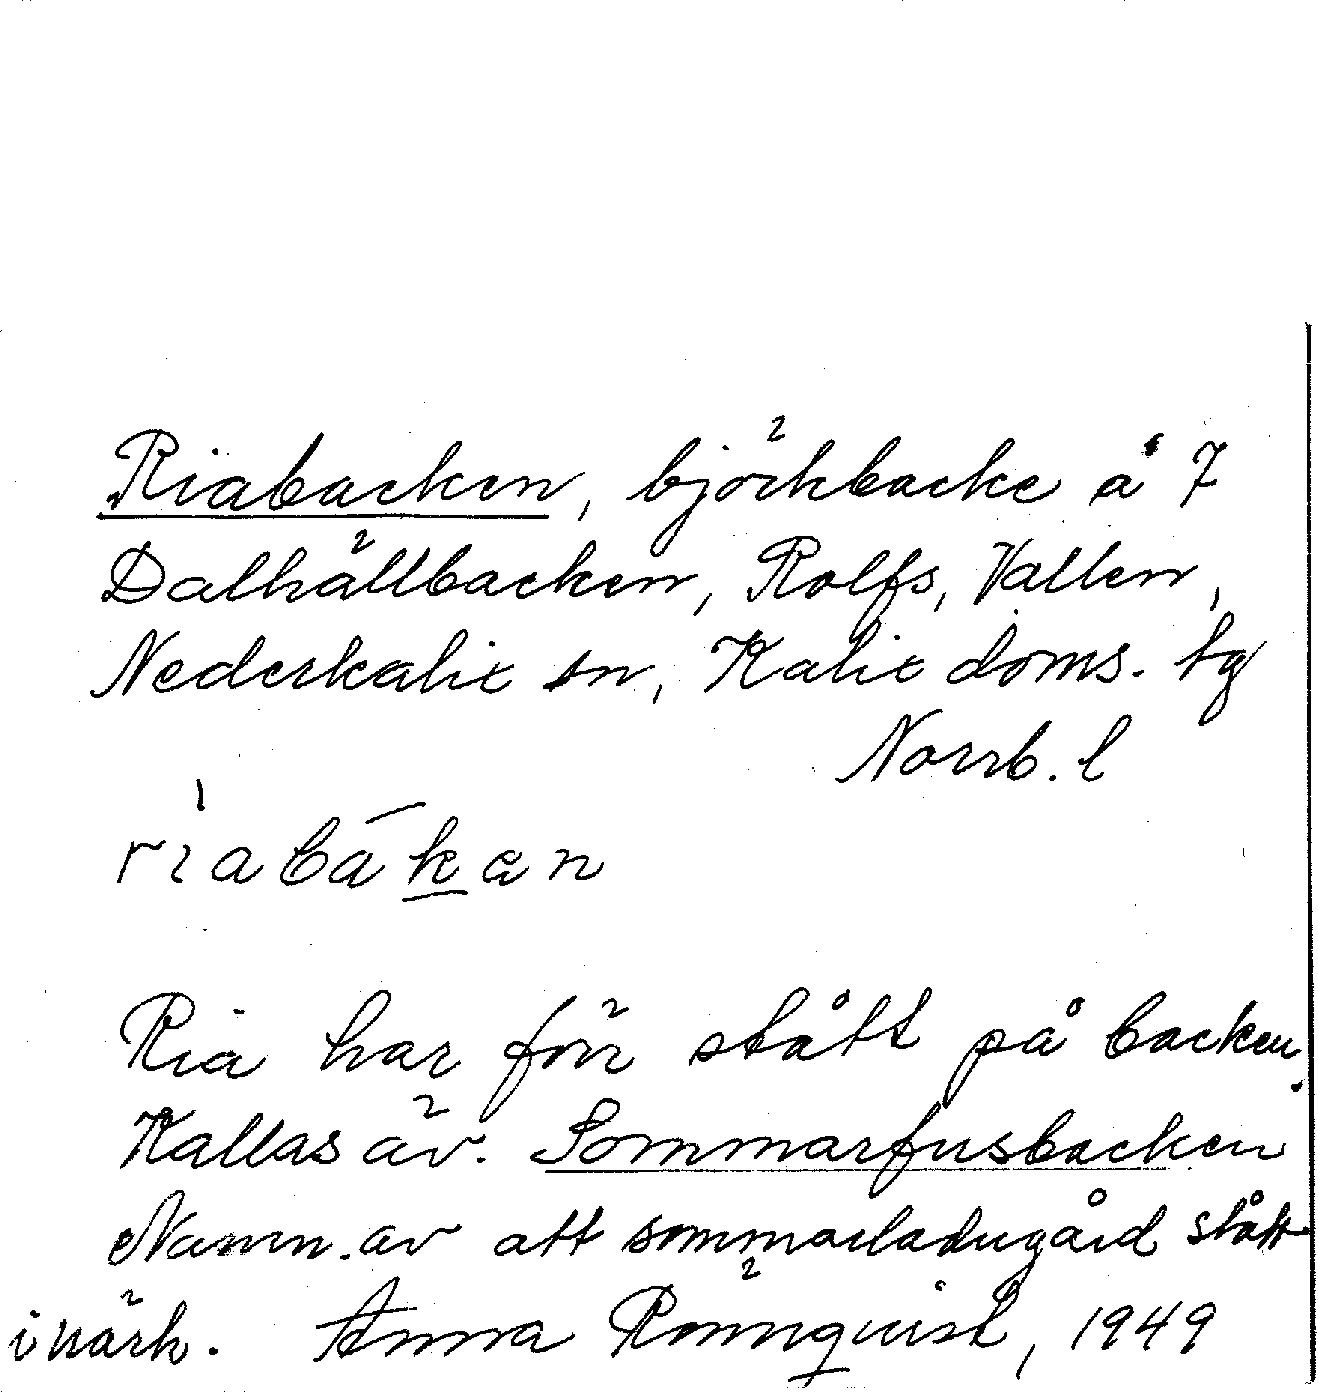 Riabacken, björkbacke å 7
Dalhällbacken, Rolfs, Vallen,
Nederkalix sn, Kalix doms. tg
Norrb. l
riabákan
Ria har förr stått på backen.
Kallas äv. Sommarfusbacken
Namn. av att sommarladugård stått
i närh. Anna Rönnquist, 1949